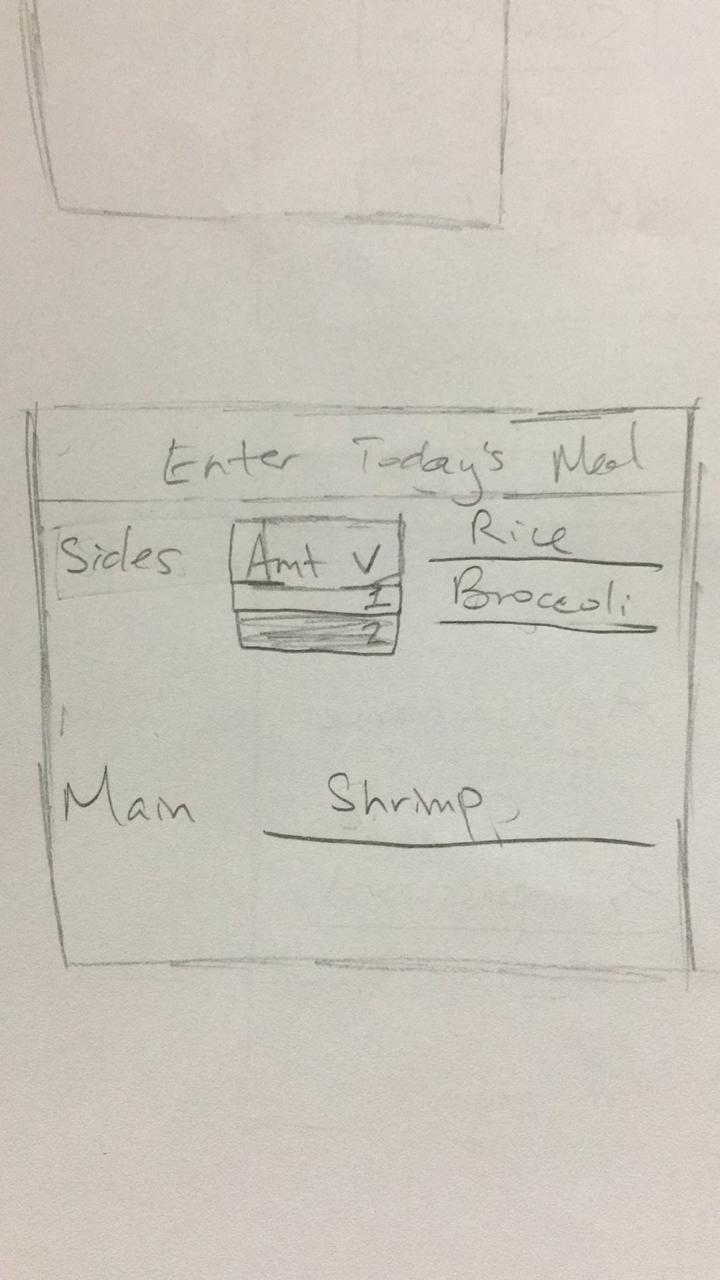 Enter Today's Meal
Sides Amt V Rice
1 Broccoli
2
Main Shrimp